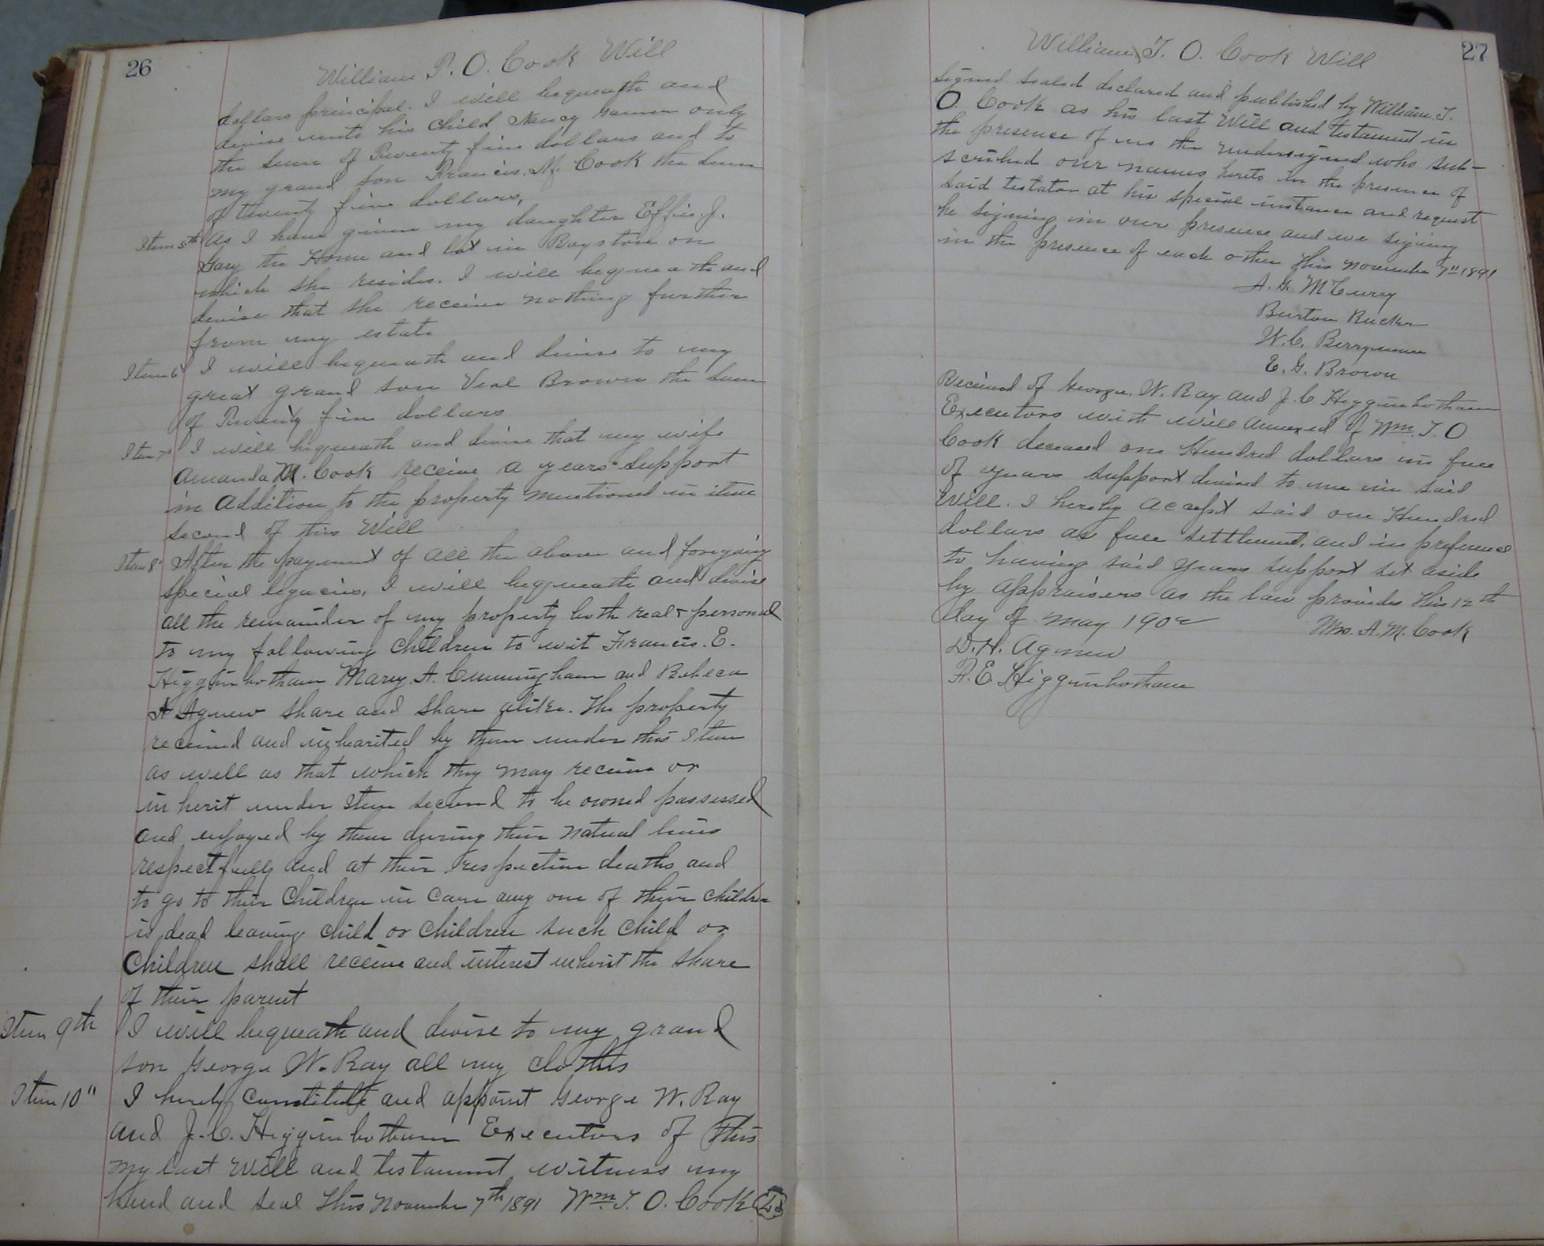 26
William T. O. Cook Will
dollars principal. I will bequeath and
devise unto his child Nancy only
the sum of Twenty five dollars and to
my grand son Francis. M. Cook the sum
of twenty five dollars,
Item 5th As I have given my daughter Effie J.
Gary the Home and lot in Royston on
which she resides. I will bequeath and
devise that she receive nothing further
from my estate
Item 6 I will bequeath and devise to my
great grand son Veal Brown the sum
of Twenty five dollars
Item 7 I will bequeath and devise that my wife
Amanda M. Cook receive a years support
in addition to the property mentioned in item
second of this Will
Item 8" After the payment of all the above and forgoing
special legacies, I will bequeath and devise
all the remainder of my property both real & personal
to my following Children to wit Francis. E.
Higginbotham Mary. A. Cunningham and Rebeca
A Agnew share and share alike. The property
received and inharited by them under this Item
as well as that which they may receive or
inherit under Item second to be owned possessed
and enjoyed by them during their natural lives
respectfully and at their respective deaths and
to go to their Children in case any one of their children
is dead leaving child or children such child or
Children shall receive and interest inherit the share
of their parent
Item 9th I will bequeath and devise to my grand
son George W. Ray all my clothes
Item 10" I hereby constitute and appoint George W. Ray
and J. C. Higginbotham Executors of This
my last Will and testament, witness my
hand and seal This November 7th 1891 Wm. T. O. Cook LS
27
William T. O. Cook Will
Signed sealed declared and published by William T.
O Cook as his last Will and testament in
the presence of us the undersigned who sub-
scribed our names hereto in the presence of
said testator at his special instance and request
he signing in our presence and we signing
in the presence of each other this November 7" 1891
A. G. McCurry
Burton Rucker
W. C. Berryman
E. G. Brown
Received of George. W. Ray and J. C Higginbotham
Executors with will annexed of Wm. T. O
Cook deceased one Hundred dollars in full
of years support devised to me in said
Will. I hereby accept said one Hundred
dollars as full settlement, and in preference
to having said years support set aside
by appraisers as the law provides this 12th
day of May 1902 Mrs. A. M. Cook
D. H. Agnew
F. E Higginbotham